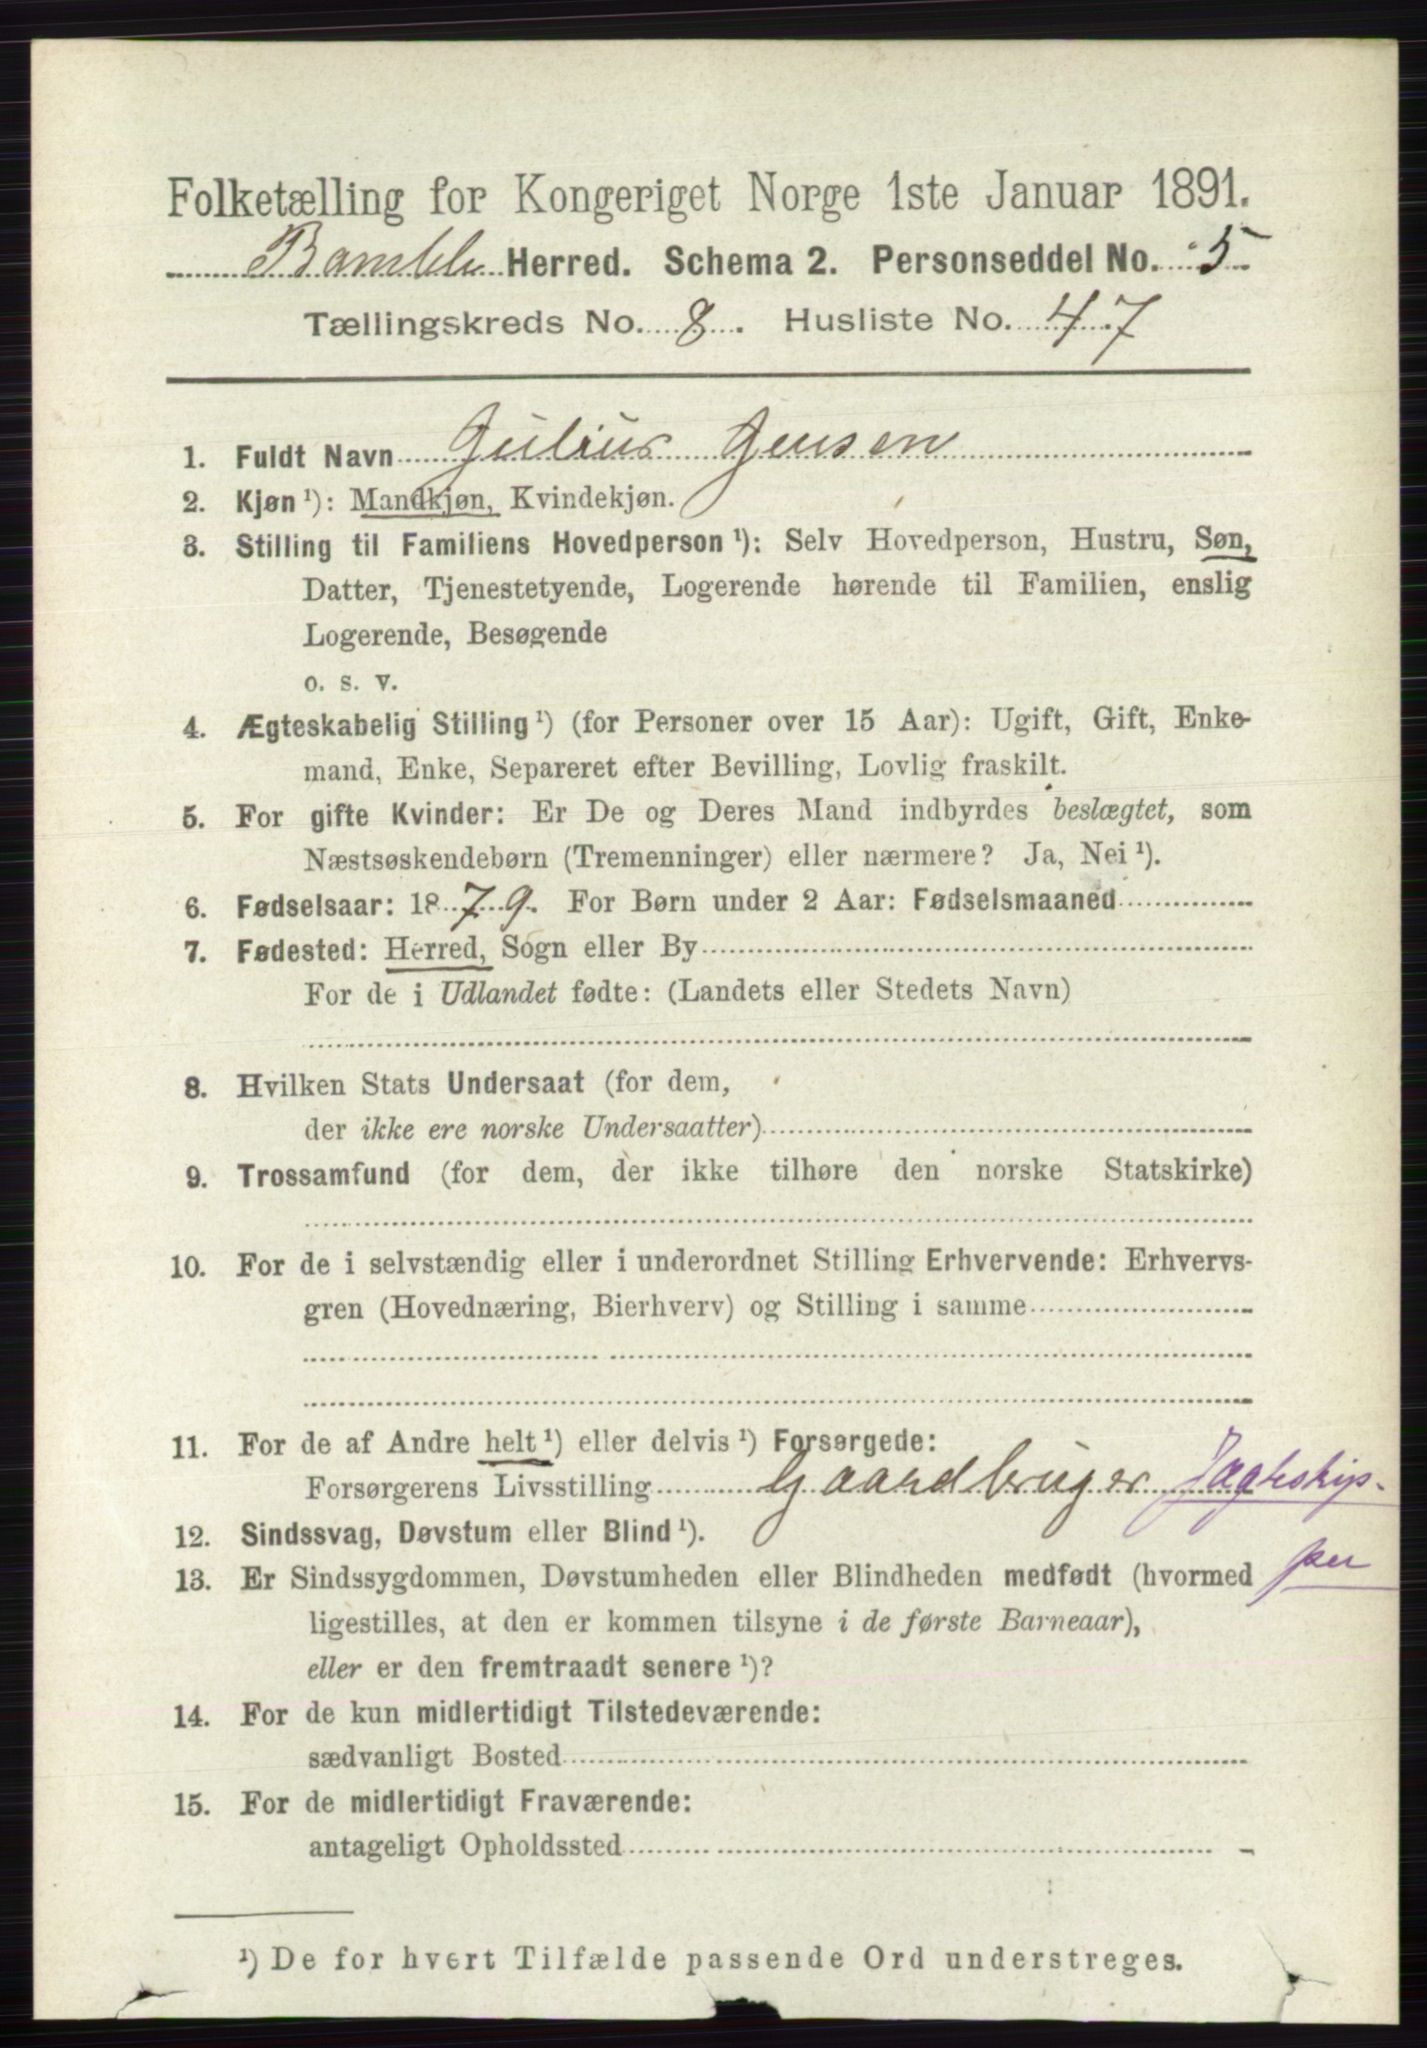 Folketælling for Kongeriget Norge 1ste Januar 1891.
Bamble Herred. Schema 2. Personseddel No. 5
Tællingskreds No. 8. Husliste No. 47
1. Fuldt Navn Julius Jensen
2. Kjøn ¹): Mandkjøn, Kvindekjøn.
3. Stilling til Familiens Hovedperson ¹): Selv Hovedperson, Hustru, Søn,
Datter, Tjenestetyende, Logerende hørende til Familien, enslig
Logerende, Besøgende
o. s. v.
4. Ægteskabelig Stilling ¹) (for Personer over 15 Aar): Ugift, Gift, Enke-
mand, Enke, Separeret efter Bevilling, Lovlig fraskilt.
5. For gifte Kvinder: Er De og Deres Mand indbyrdes beslægtet, som
Næstsøskendebørn (Tremenninger) eller nærmere? Ja, Nei ¹).
6. Fødselsaar: 1879. For Børn under 2 Aar: Fødselsmaaned
7. Fødested: Herred, Sogn eller By
For de i Udlandet fødte: (Landets eller Stedets Navn)
8. Hvilken Stats Undersaat (for dem,
der ikke ere norske Undersaatter)
9. Trossamfund (for dem, der ikke tilhøre den norske Statskirke)
10. For de i selvstændig eller i underordnet Stilling Erhvervende: Erhvervs-
gren (Hovednæring, Bierhverv) og Stilling i samme
11. For de af Andre helt ¹) eller delvis ¹) Forsørgede:
Forsørgerens Livsstilling Gaardbruger Jagtskip-
per
12. Sindssvag, Døvstum eller Blind ¹).
13. Er Sindssygdommen, Døvstumheden eller Blindheden medfødt (hvormed
ligestilles, at den er kommen tilsyne i de første Barneaar),
eller er den fremtraadt senere ¹)?
14. For de kun midlertidigt Tilstedeværende:
sædvanligt Bosted
15. For de midlertidigt Fraværende:
antageligt Opholdssted
¹) De for hvert Tilfælde passende Ord understreges.